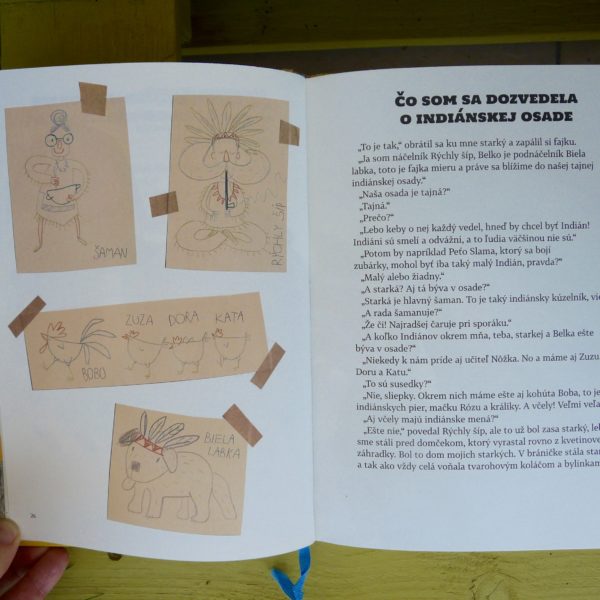 ŠAMAN
RÝCHLY ŠÍP
ZUZA DORA KATA
BOBO
BIELA
LABKA
26
ČO SOM SA DOZVEDELA
O INDIÁNSKEJ OSADE
„To je tak,“ obrátil sa ku mne starký a zapálil si fajku.
„Ja som náčelník Rýchly šíp, Belko je podnáčelník Biela
labka, toto je fajka mieru a práve sa blížime do našej tajnej
indiánskej osady.“
„Naša osada je tajná?“
„Tajná.“
„Prečo?“
„Lebo keby o nej každý vedel, hneď by chcel byť Indián!
Indiáni sú smelí a odvážni, a to ľudia väčšinou nie sú.“
„Potom by napríklad Peťo Slama, ktorý sa bojí
zubárky, mohol byť iba taký malý Indián, pravda?“
„Malý alebo žiadny.“
„A starká? Aj tá býva v osade?“
„Starká je hlavný šaman. To je taký indiánsky kúzelník, vie
„A rada šamanuje?“
„Že či! Najradšej čaruje pri sporáku.“
„A koľko Indiánov okrem mňa, teba, starkej a Belka ešte
býva v osade?“
„Niekedy k nám príde aj učiteľ Nôžka. No a máme aj Zuzu
Doru a Katu.“
„To sú susedky?“
„Nie, sliepky. Okrem nich máme ešte aj kohúta Boba, to je
indiánskych pier, mačku Rózu a králiky. A včely! Veľmi veľa
„Aj včely majú indiánske mená?“
„Ešte nie,“ povedal Rýchly šíp, ale to už bol zasa starký, le
sme stáli pred domčekom, ktorý vyrastal rovno z kvetinove
záhradky. Bol to dom mojich starkých. V bráničke stála star
a tak ako vždy celá voňala tvarohovým koláčom a bylinkam